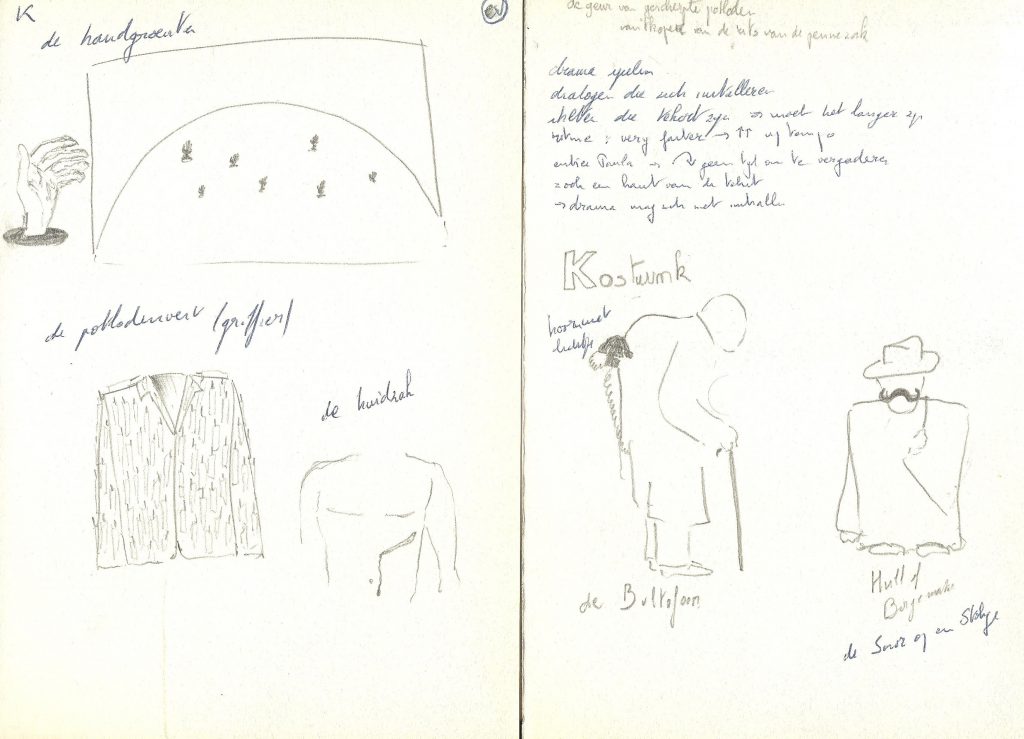 K
de handgroenten
de potlodenvest (griffier)
de huidzak
de geur van gescherpte potloden
van de rits van de pennezak
drama spelen
dialogen die zich installeren
stiltes die tekort zijn → moet het langer zijn
ritme : very faster → ↑↑ uptempo
→ geen tijd om te vergaderen
zoek een haut van de tekst
→ drama mag zich niet installe
Kostuumk
hoorn met
de Bultofoon
Hulk of
Burgemeester
de Snor op een Stokje